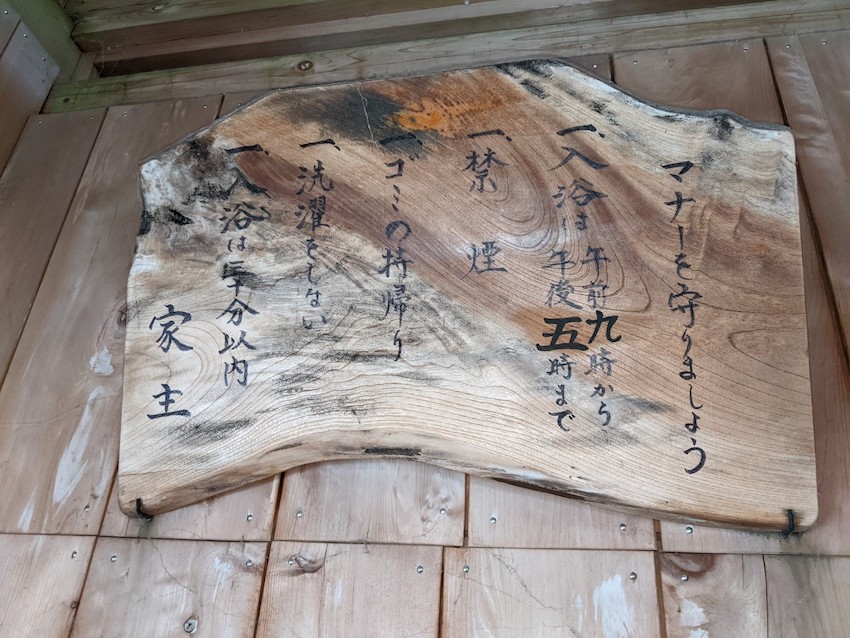 マナーを守りましょう
一、入浴は午前九時から
午後五時まで
一、禁煙
一、ゴミの持帰り
一、洗濯をしない
一、入浴は二十分以内
家主